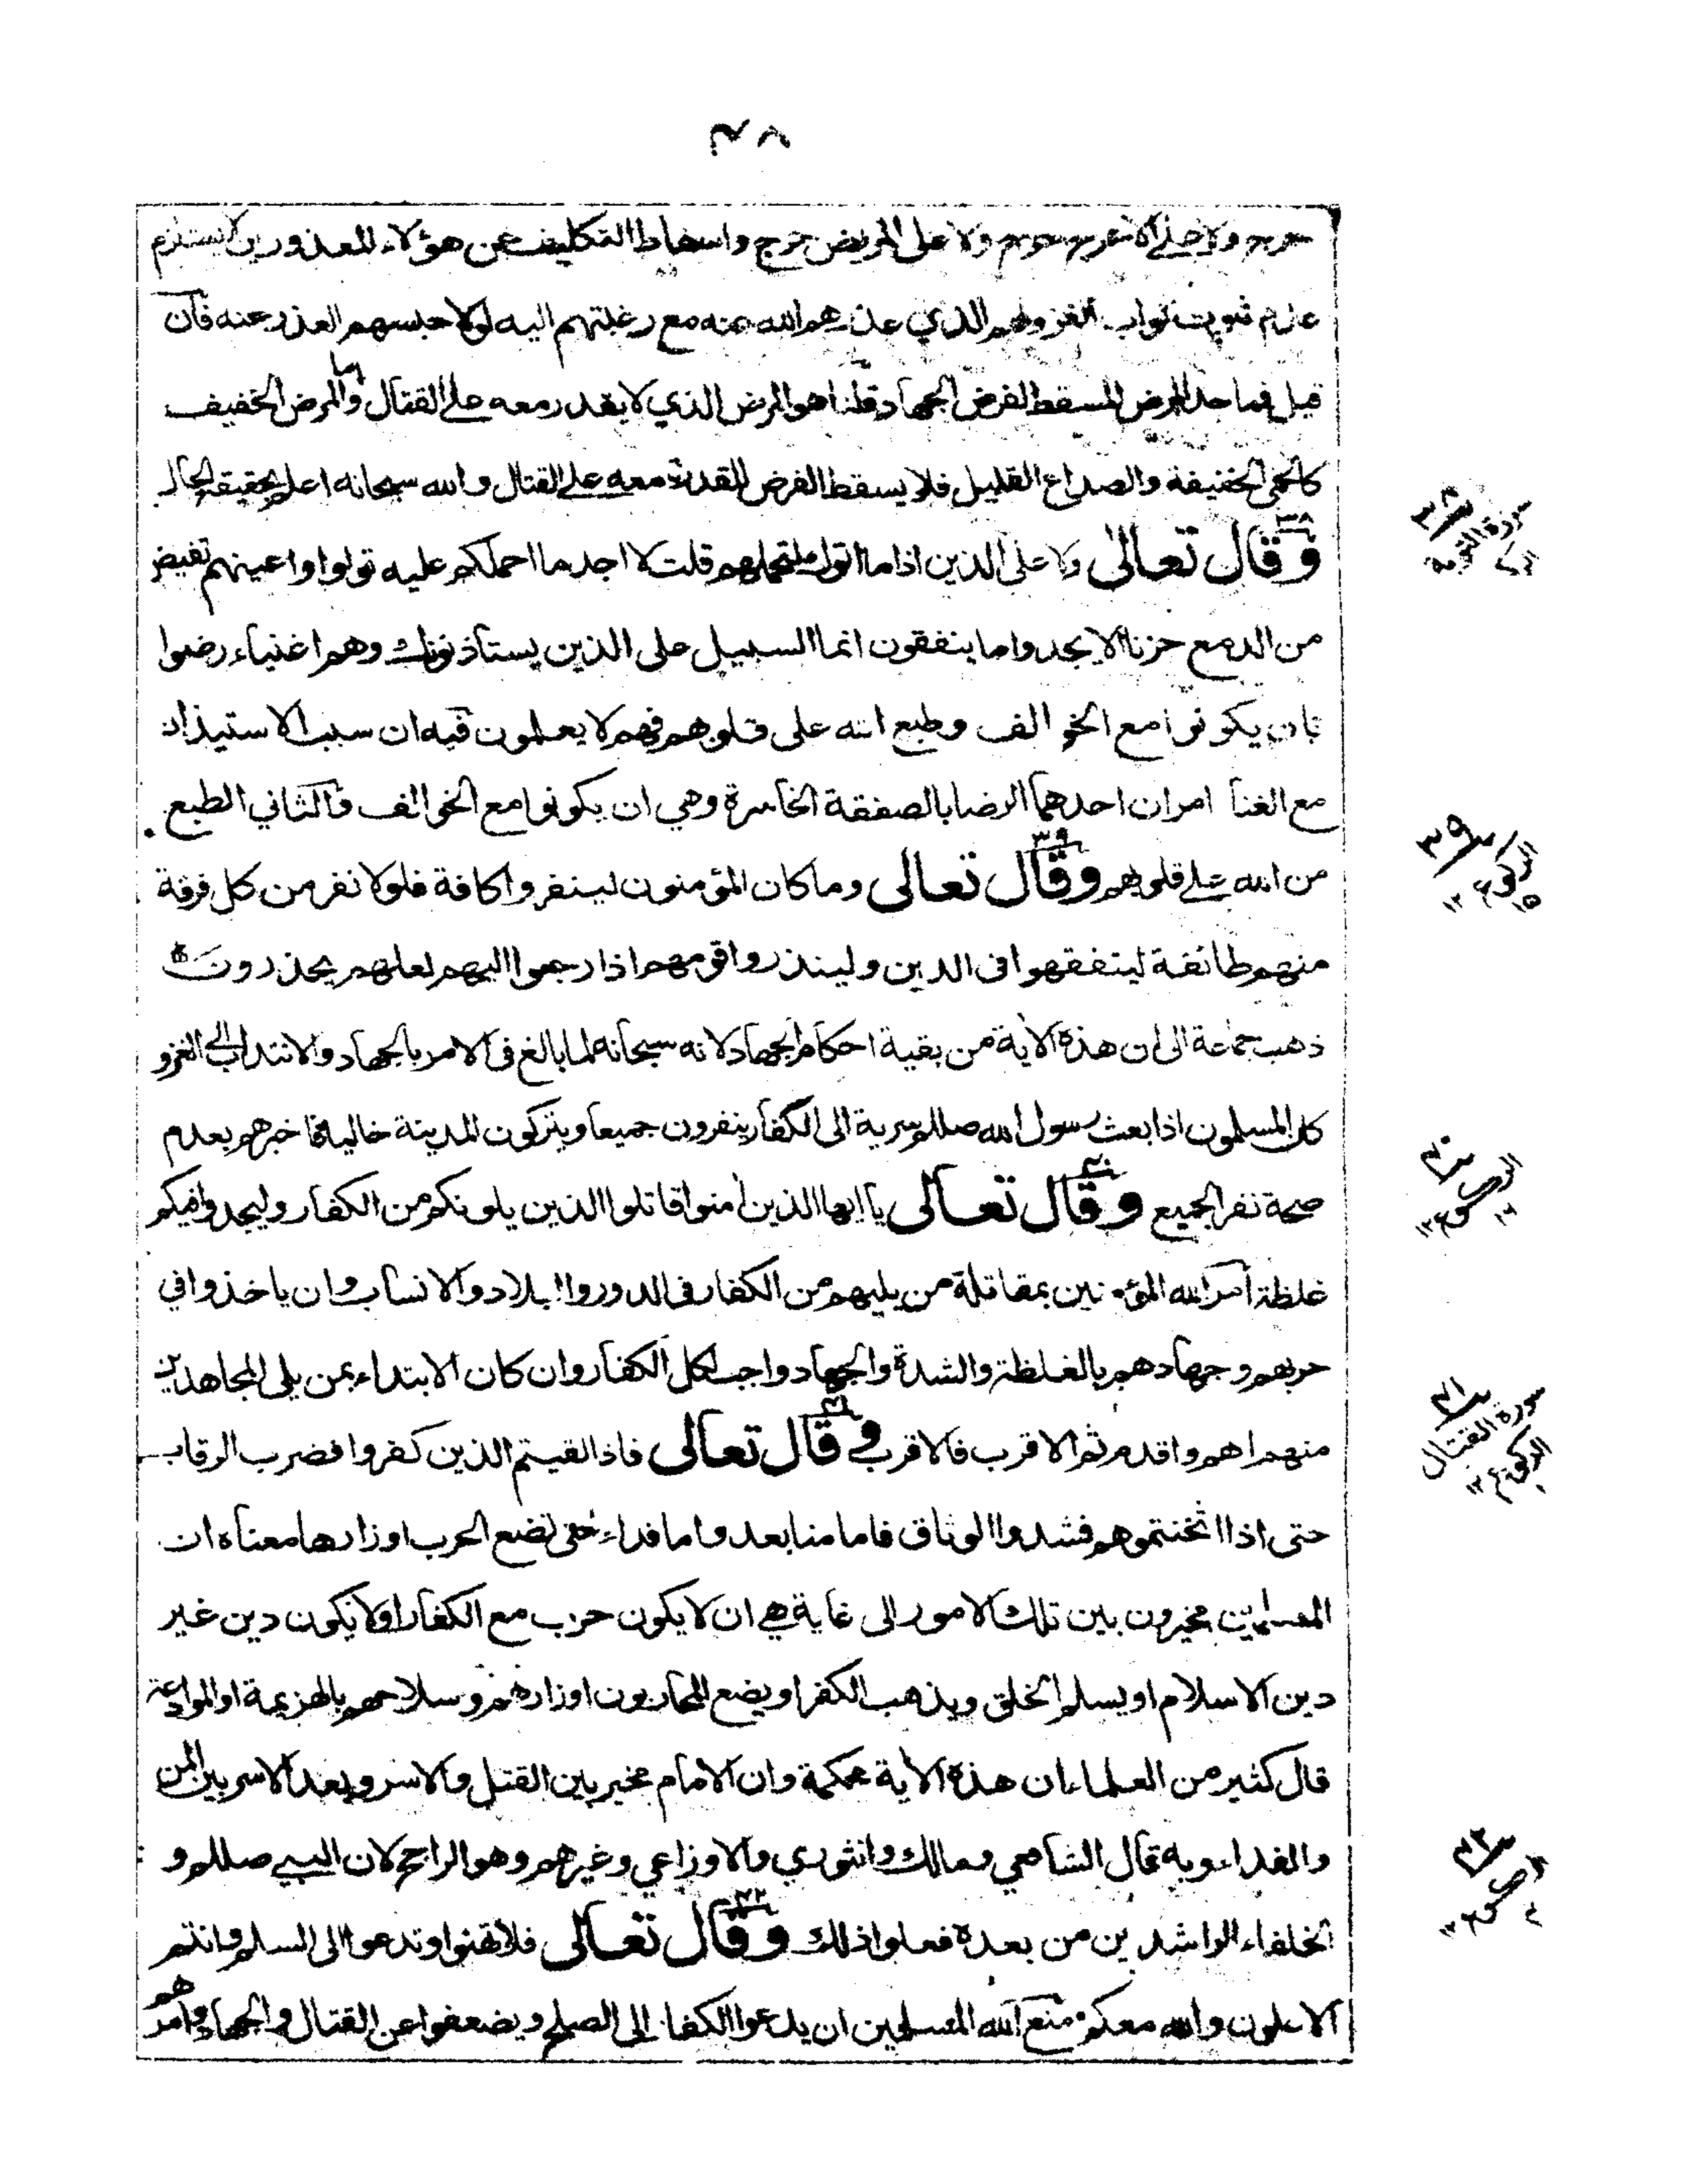 ٤٨
حرج ولا على الاعرج حرج ولا على المريض حرج واسقاط التكليف عن هؤلاء المعذورين لا يستلزم
عدم ثبوت ثواب الغزو لهم الذي عذرهم الله عنه مع رغبتهم اليه لولا حبسهم العذر عنه فان
قيل فما حد المرض المسقط لفرض الجهاد قلنا هو المرض الذي لا يقدر معه على القتال واما المرض الخفيف
كالحمى الخفيفة والصداع القليل فلا يسقط الفرض للقدرة معه على القتال والله سبحانه اعلم بحقيقة الحال
٣٨
وقال تعالى ولا على الذين اذا ما اتوك لتحملهم قلت لا اجد ما احملكم عليه تولوا واعينهم تفيض
من الدمع حزنا الا يجدوا ما ينفقون انما السبيل على الذين يستاذنونك وهم اغنياء رضوا
بان يكونوا مع الخوالف وطبع الله على قلوبهم فهم لا يعلمون فيه ان سبب الاستيذان
مع الغنا امران احدهما الرضا بالصفقة الخاسرة وهي ان يكونوا مع الخوالف والثاني الطبع
٣٩
من الله على قلوبهم وقال تعالى وما كان المؤمنون لينفروا كافة فلولا نفر من كل فرقة
منهم طائفة ليتفقهوا فى الدين ولينذروا قومهم اذا رجعوا اليهم لعلهم يحذرون
ذهب جماعة الى ان هذه الاية من بقية احكام الجهاد لانه سبحانه لما بالغ فى الامر بالجهاد والانتداب الى الغزو
كان المسلمون اذا بعث رسول الله صللم سرية الى الكفار ينفرون جميعا ويتركون المدينة خالية فاخبرهم بعدم
٤٠
صحة نفر الجميع وقال تعالى يا ايها الذين امنوا قاتلوا الذين يلونكم من الكفار وليجدوا فيكم
غلظة امر الله المؤمنين بمقاتلة من يليهم من الكفار فى الدور والبلاد والانساب وان ياخذوا في
حربهم وجهادهم بالغلظة والشدة والجهاد واجب لكل الكفار وان كان الابتداء بمن يلى المجاهدين
٤١
منهم اهم واقدم ثم الاقرب فالاقرب وقال تعالى فاذا لقيتم الذين كفروا فضرب الرقاب
حتى اذا اثخنتموهم فشدوا الوثاق فاما منا بعد واما فداء حتى تضع الحرب اوزارها معناه ان
المسلمين مخيرون بين تلك الامور الى غاية هي ان لا يكون حرب مع الكفار او لا يكون دين غير
دين الاسلام او يسلم الخلق ويذهب الكفر او يضع المحاربون اوزارهم وسلاحهم بالهزيمة او الموادعة
قال كثير من العلماء ان هذه الاية محكمة وان الامام مخير بين القتل والاسر وبعد الاسر بين المن
والفداء وبه قال الشافعي ومالك والثوري والاوزاعي وغيرهم وهو الراجح لان النبي صللم و
٤٢
الخلفاء الراشدين من بعده فعلوا ذلك وقال تعالى فلا تهنوا وتدعوا الى السلم وانتم
الاعلون والله معكم منع الله المسلمين ان يدعوا الكفار الى الصلح ويضعفوا عن القتال والجهاد وامرهم
٣٨
سورة التوبة
٣٩
الركوع
٤٠
الركوع
٤١
سورة القتال
الركوع
٤٢
الركوع